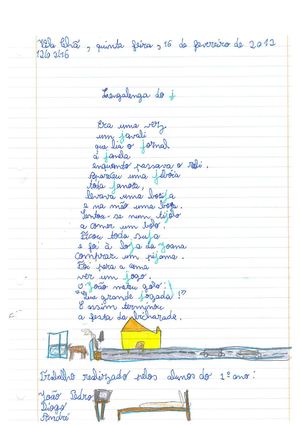 Vila Chã, quinta feira, 16 de fevereiro de 2012
Lengalenga do j
Era uma vez
um javali
que lia o jornal
à janela
enquanto passava o
Apareceu uma jiboia
toda janota
levava uma
e na mão uma
Sentou-se num tijolo
a comer um
Ficou toda suja
e foi à loja da Joana
comprar um pijama.
Foi para a cama
ver um jogo.
O João marcou golo:
"Que grande jogada!"
E assim terminou
a festa da bicharada.
Trabalho realizado pelos alunos do 1º ano:
João Pedro
Diogo
André